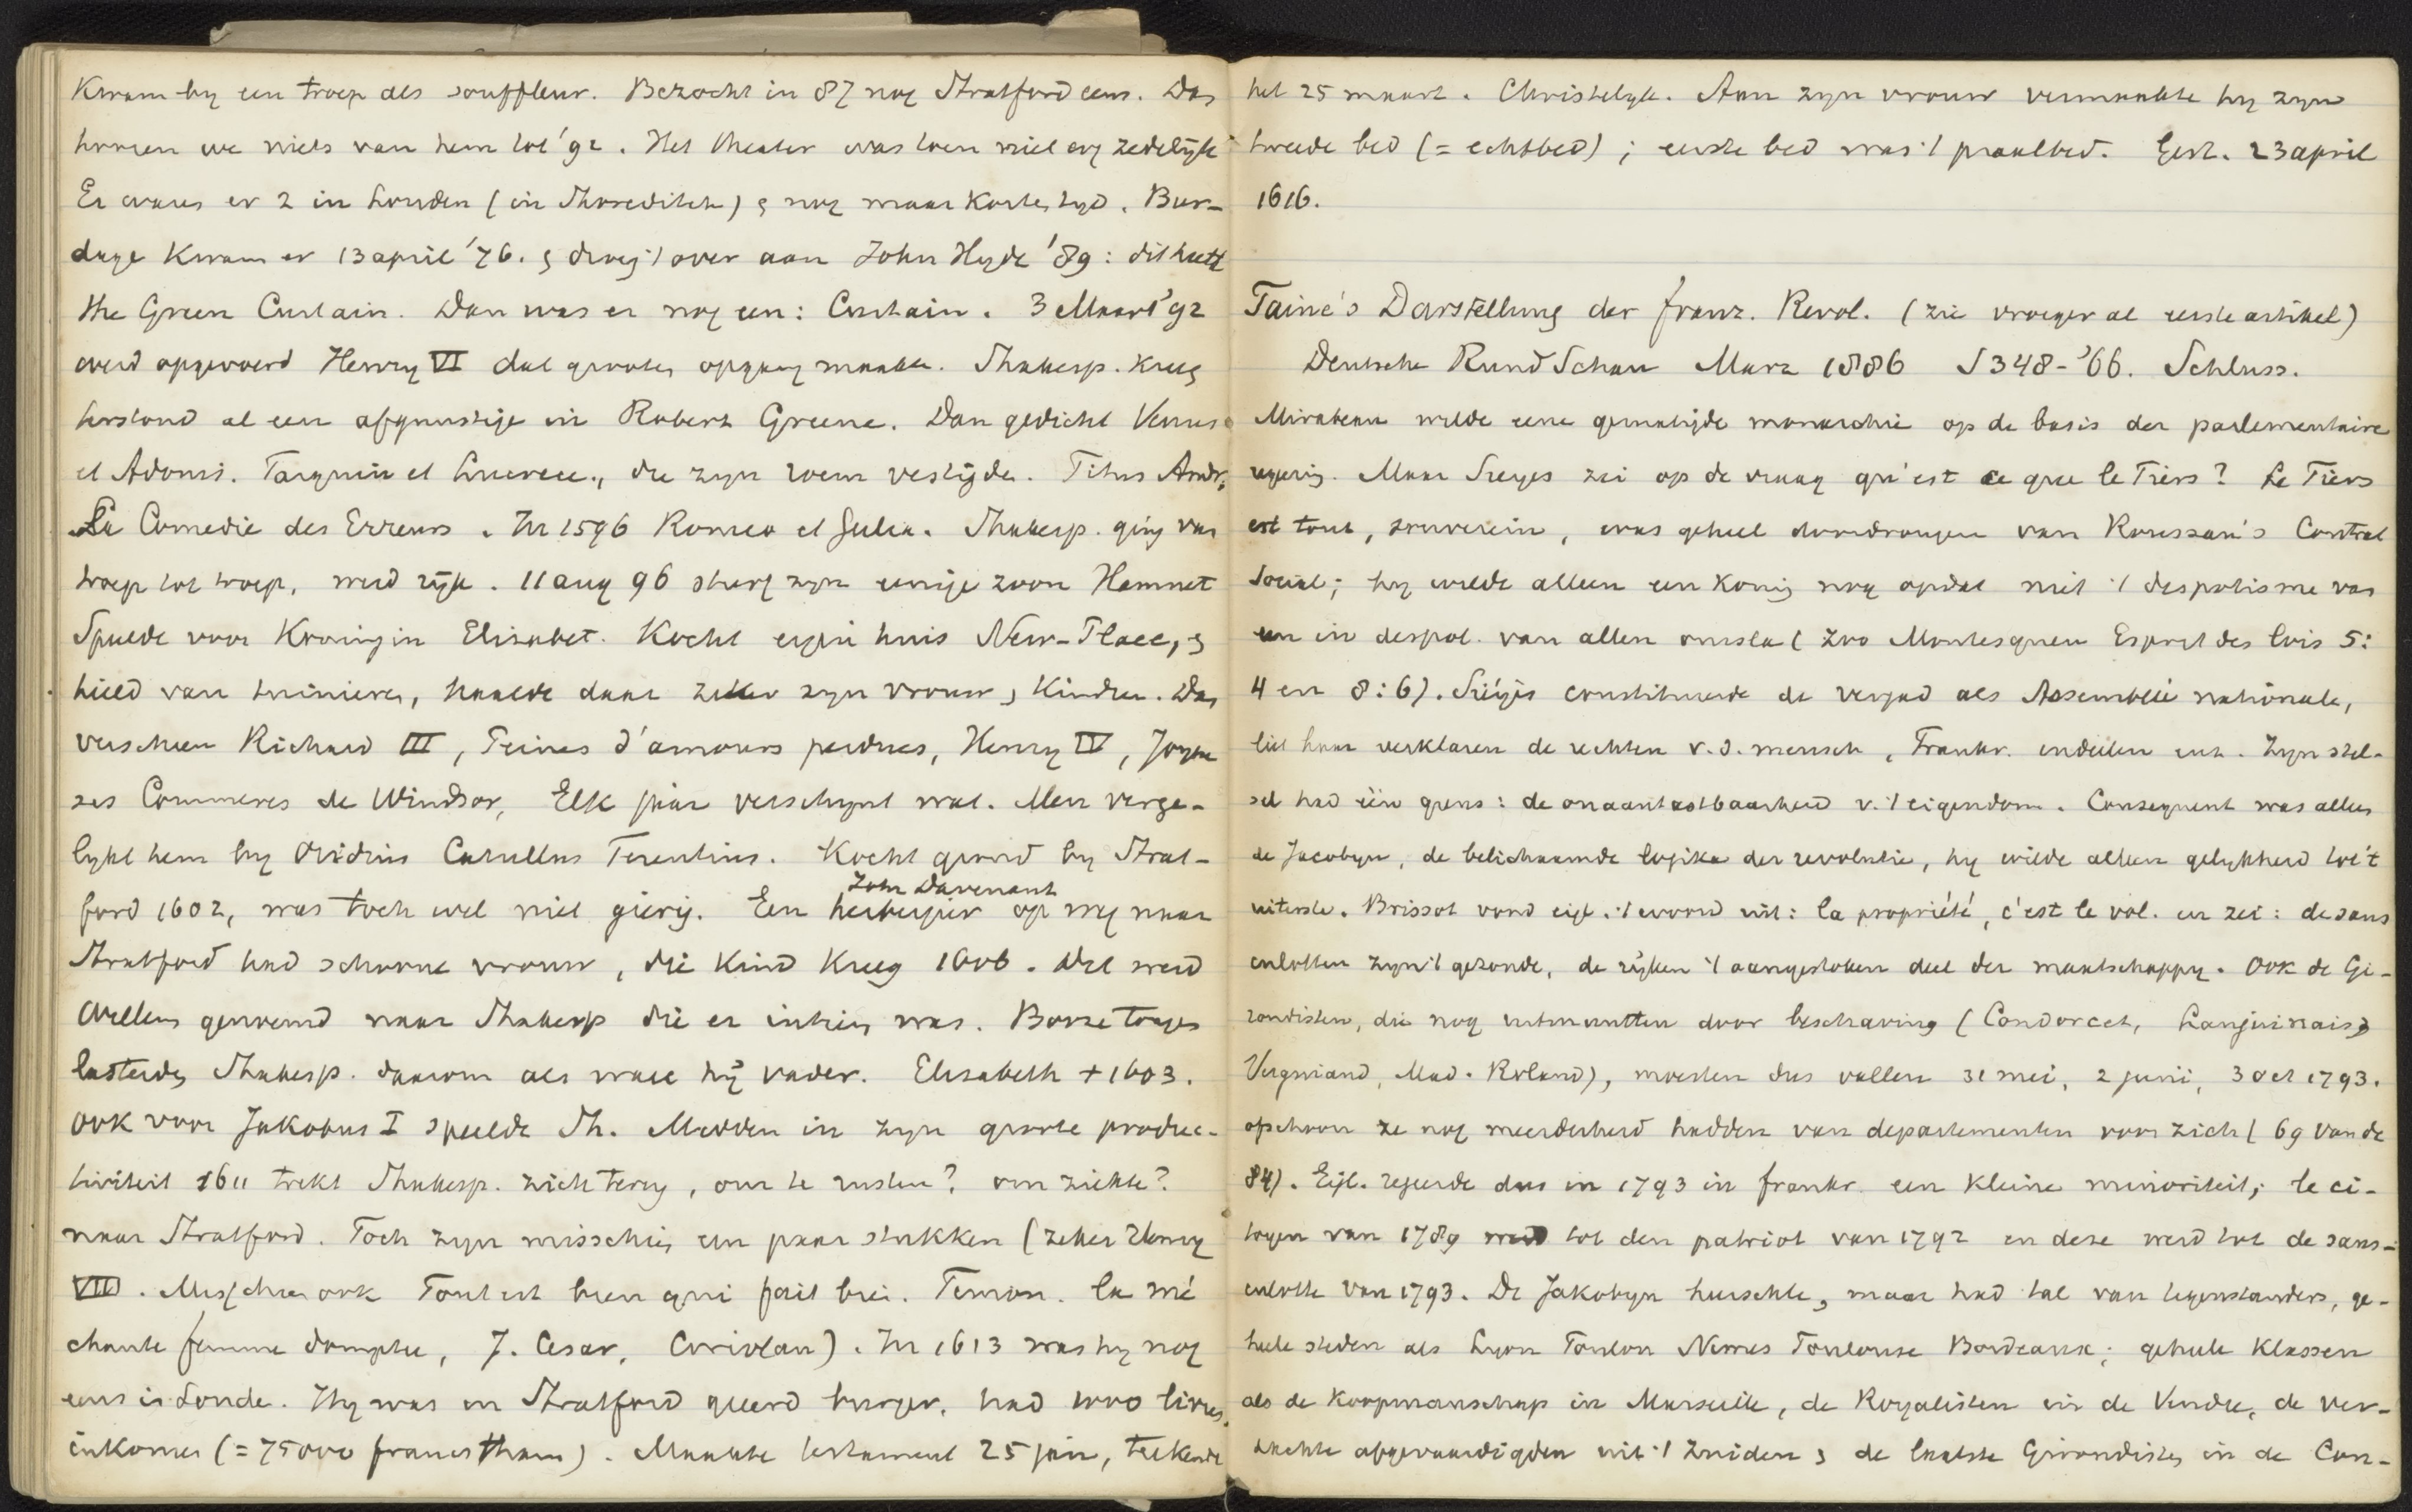 Kwam by een troep als souffleur. Bezocht in 87 nog Stratford eens. Dan
hooren we niets van hem tot '92. Het theater was toen niet erg zedelijk
Er waren er 2 in Londen (in Shoreditch) & nog maar korten tyd. Bur-
dage kwam er 13 april '76. & droeg 't over aan John Hyde '89: dit heette
the Green Curtain. Dan was er nog een: Curtain. 3 Maart '92
werd opgevoerd Henry VI dat grooten opgang maakte. Shakesp. kreeg
terstond al een afgunstige in Robert Greene. Dan gedicht Venus
et Adonis. Tarquin et Lucrece., die zyn roem vestigde. Titus Andr.
La Comedie des Erreurs. In 1596 Romeo et Julia. Shakesp. ging van
troep tot troep, werd rijk. 11 aug 96 sterf zyn eenige zoon Hamnet
Speelde voor Koningin Elisabet. Kocht eigen huis New-Place, &
hield van tuinieren, haalde daar zeker zyn vrouw & kinderen. Dan
verscheen Richard III, Peines d'amours perdues, Henry IV, Joyeu
ses Commeres de Windsor, Elk jaar verschynt wat. Men verge-
lykt hem by Ovidius Catullus Terentius. Kocht grond by Strat-
ford 1602, was toch wel niet gierig. Een herbergier op weg naar
John Davenant
Stratford had schoone vrouw, die kind kreeg 1606. Dat werd
Willem genoemd naar Shakesp die er intiem was. Booze tonges
lasterden Shakesp. daarom als ware hij vader. Elisabeth + 1603.
Ook voor Jakobus I speelde Sh. Midden in zyn groote produc-
tiviteit 1611 trekt Shakesp. zich terug, om te rusten? om ziekte?
naar Stratford. Toch zyn misschien een paar stukken (zeker Henry
VIII. Misschien ook Tout est bien qui finit bien. Timon. la mé
chante femme domptee, J. Cesar, Coriolan). In 1613 was hy nog
eens in Londe. Hy was in Stratford geeerd burger, had livres
inkomen (= 75000 francs thans). Maakte testament 25 jan, teekende
het 25 maart. Christelyk. Aan zyn vrouw vermaakte hy zyn
tweede bed (= echtbed); eerste bed was 't praalbed. Gest. 23 april
1616.
Taine's Darstellung der franz. Revol. (zie vroeger al eerste artikel)
Deutsche RundSchau Marz 1886 S 348-'66. Schluss.
Mirabeau wilde eene gematigde monarchie op de basis der parlementaire
regering. Maar Sieyes zei op de vraag qu'est ce que le Tiers? Le Tiers
est tout, souverein, was geheel doordrongen van Roussau's Contrat
Social; hy wilde alleen een koning nog opdat niet 't despotisme van
een in despot. van allen omsla (zoo Montesquieu Esprit des lois 5:
4 en 8:6). Siéyès constitueerde de vergad als Assemblée nationale,
liet haar verklaren de rechten v. d. mensch, Frankr. indeelen enz. Zyn stel-
sel had één grens: de onaantastbaarheid v. 't eigendom. Consequent was alleen
de Jacobyn, de belichaamde logika der revolutie, hy wilde alleen gelykheid tot 't
uiterste. Brissot vond eigl. 't woord uit: la propriété, c'est le vol. en zei: de sans
culotten zyn 't gezonde, de rijken 't aangestoken deel der maatschappy. Ook de Gi-
rondisten, die nog uitmuntten door beschaving (Condorcet, Lanjuinais,
Vergniand, Mad. Roland), moesten dus vallen 31 mei, 2 juni, 3 oct 1793.
ofschoon ze nog meerderheid hadden van departementen voor zich (69 van de
84). Eigl. regeerde dus in 1793 in frankr. een kleine minoriteit; le ci-
toyen van 1789 werd tot den patriot van 1792 en deze werd tot de sans-
culotte van 1793. De Jakobyn heerschte, maar had tal van tegenstanders, ge-
heele steden als Lyon Toulon Nimes Toulouse Bordeaux; geheele klassen
als de koopmanschap in Marseille, de Royalisten in de Vendee, de ver-
dachte afgevaardigden uit 't zuiden & de laatste Girondisten in de Con-